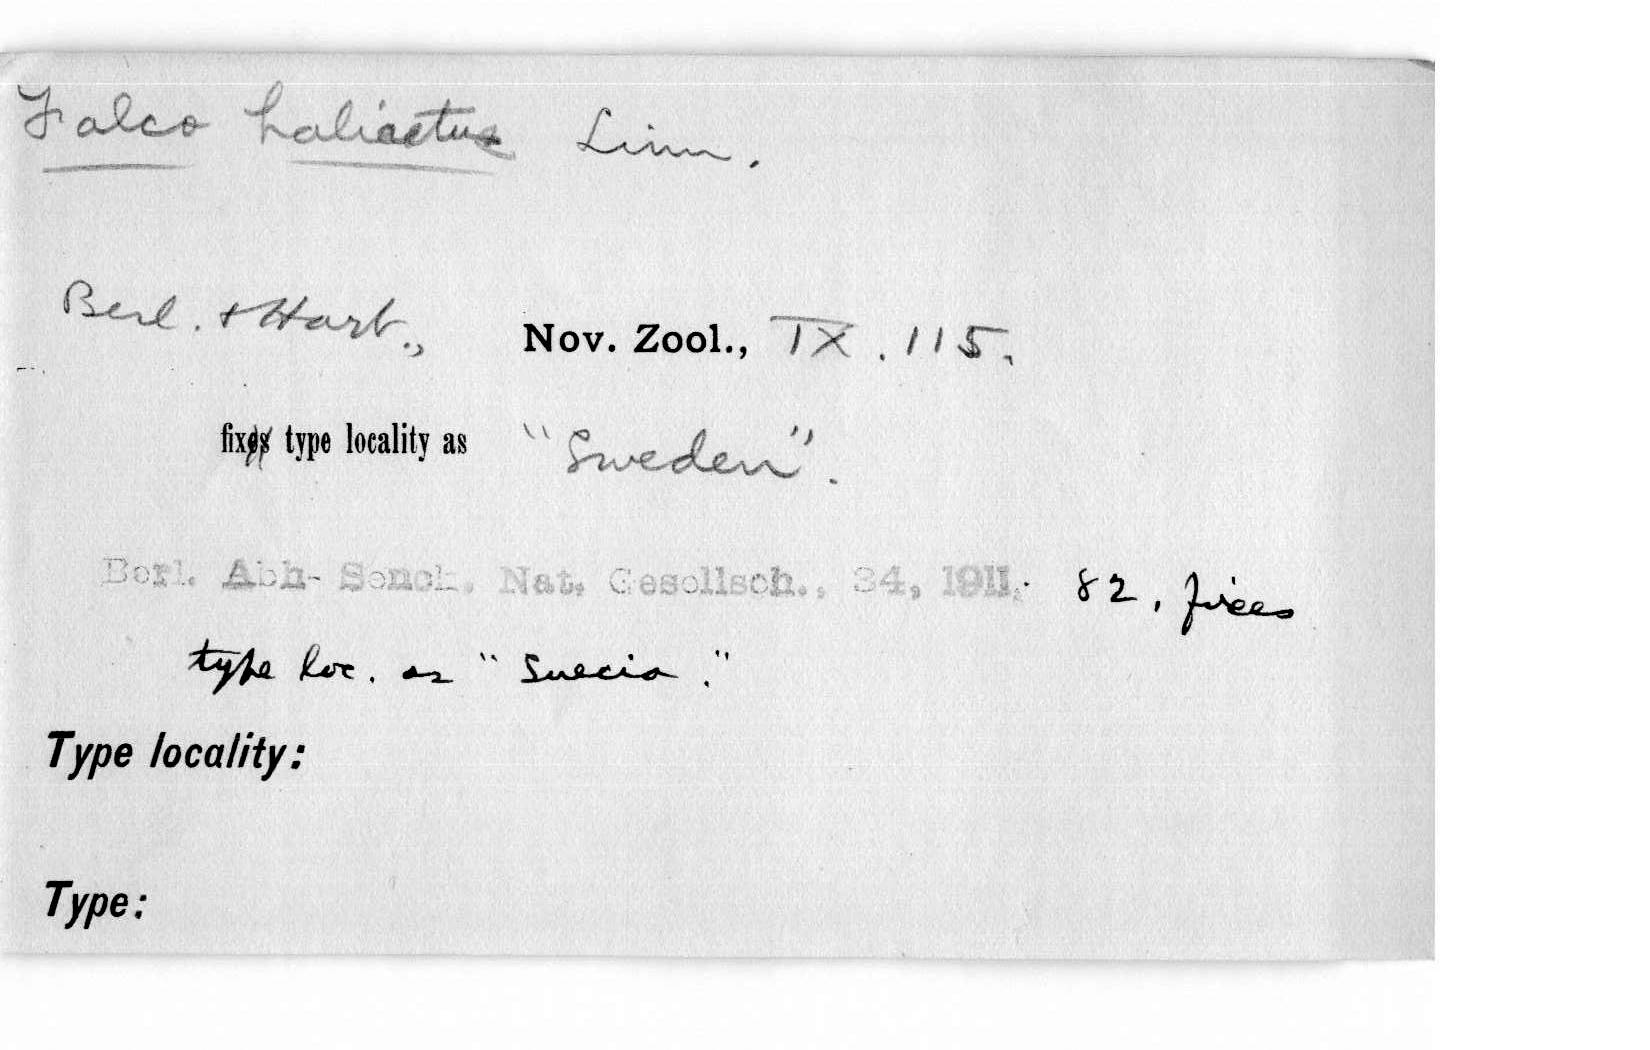 Falco haliaetus Linn.
Berl. & Hart., Nov. Zool., IX. 115.
fix type locality as "Sweden".
Berl. Abh- Senck. Nat. Gesellsch., 34, 1911, 82, fixes
type loc. as "Suecia."
Type locality:
Type: